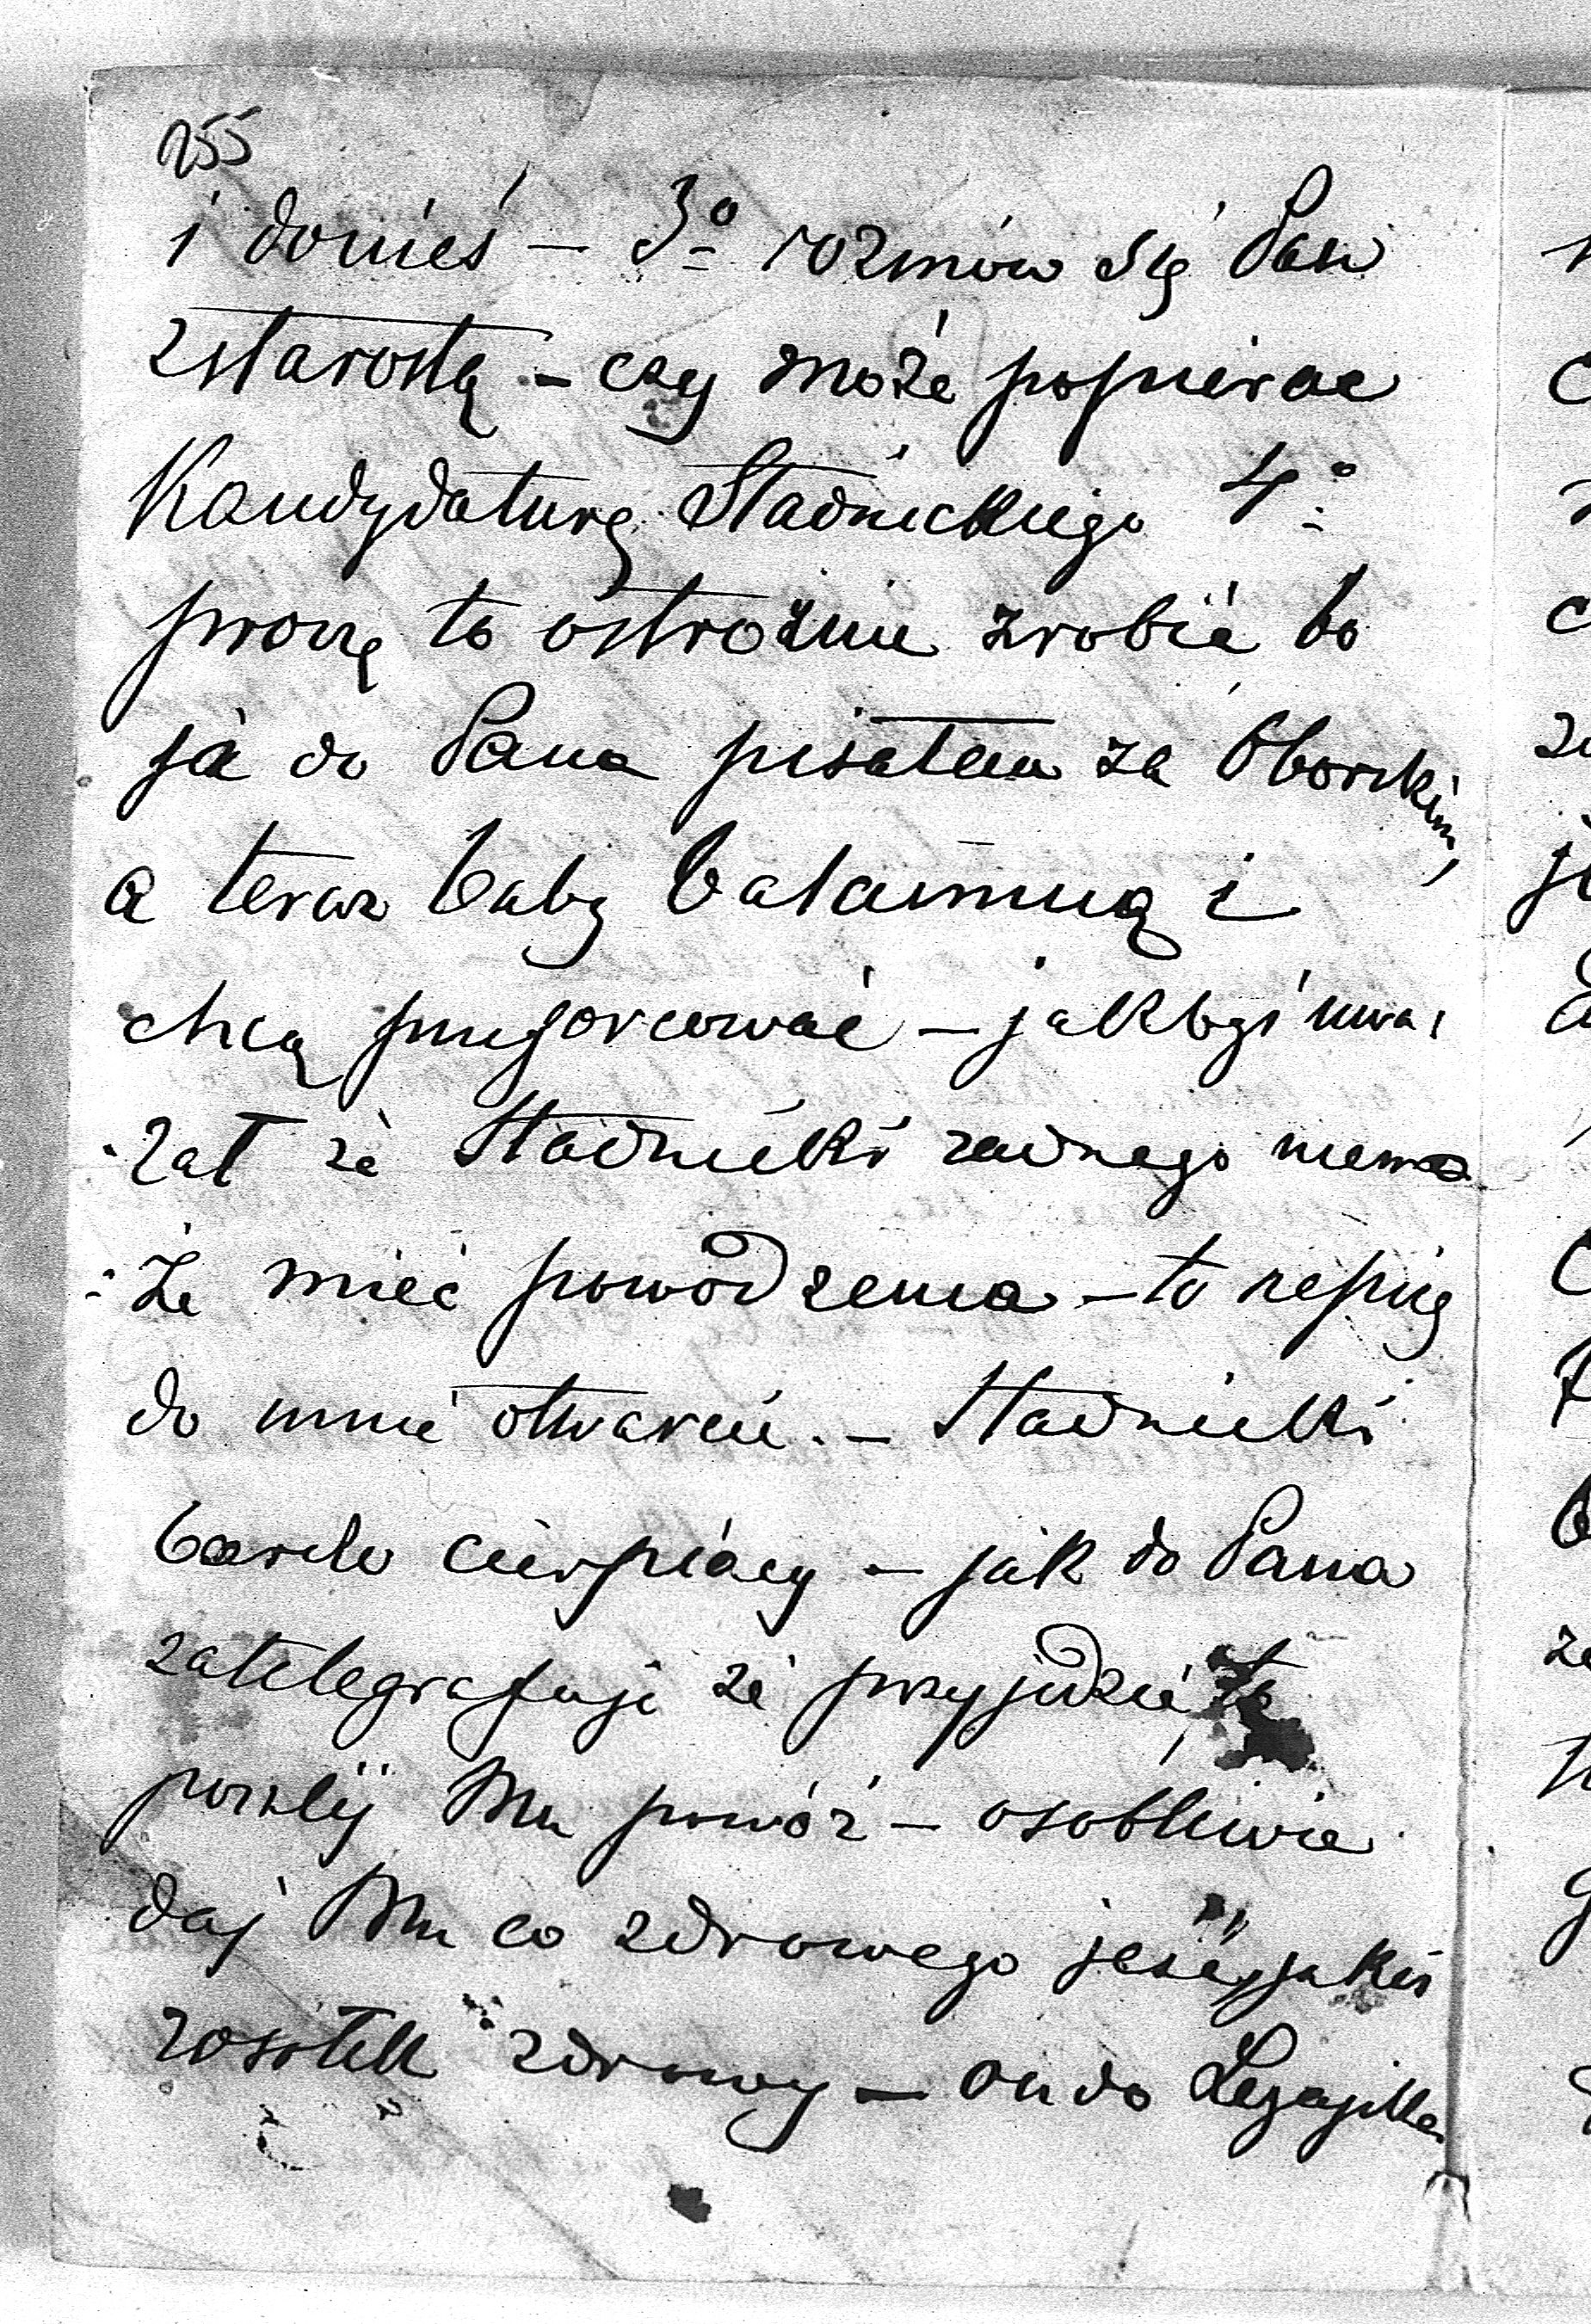 255
i donieś – 3o rozmów się Pan
z starostą – czy może popierac
Kandydaturę Stadnickiego 4o
proszę to ostrożnie zrobić bo
ja do Pana pisałem za Oborskim,
a teraz baby bałamucą i
chcą przeforcować – jakbyś uwa
żał że Stadnicki żadnego niemo
że mieć powodzenia – to napisz
do mnie otwarcie. – Stadnicki
bardzo cierpiący – jak do Pana
zatelegrafuje że przyjedzie, to
poszlij Mu powóz – osobliwie
daj Mu co zdrowego jeść, jakiś
rosołek zdrowy – on do Leżajska